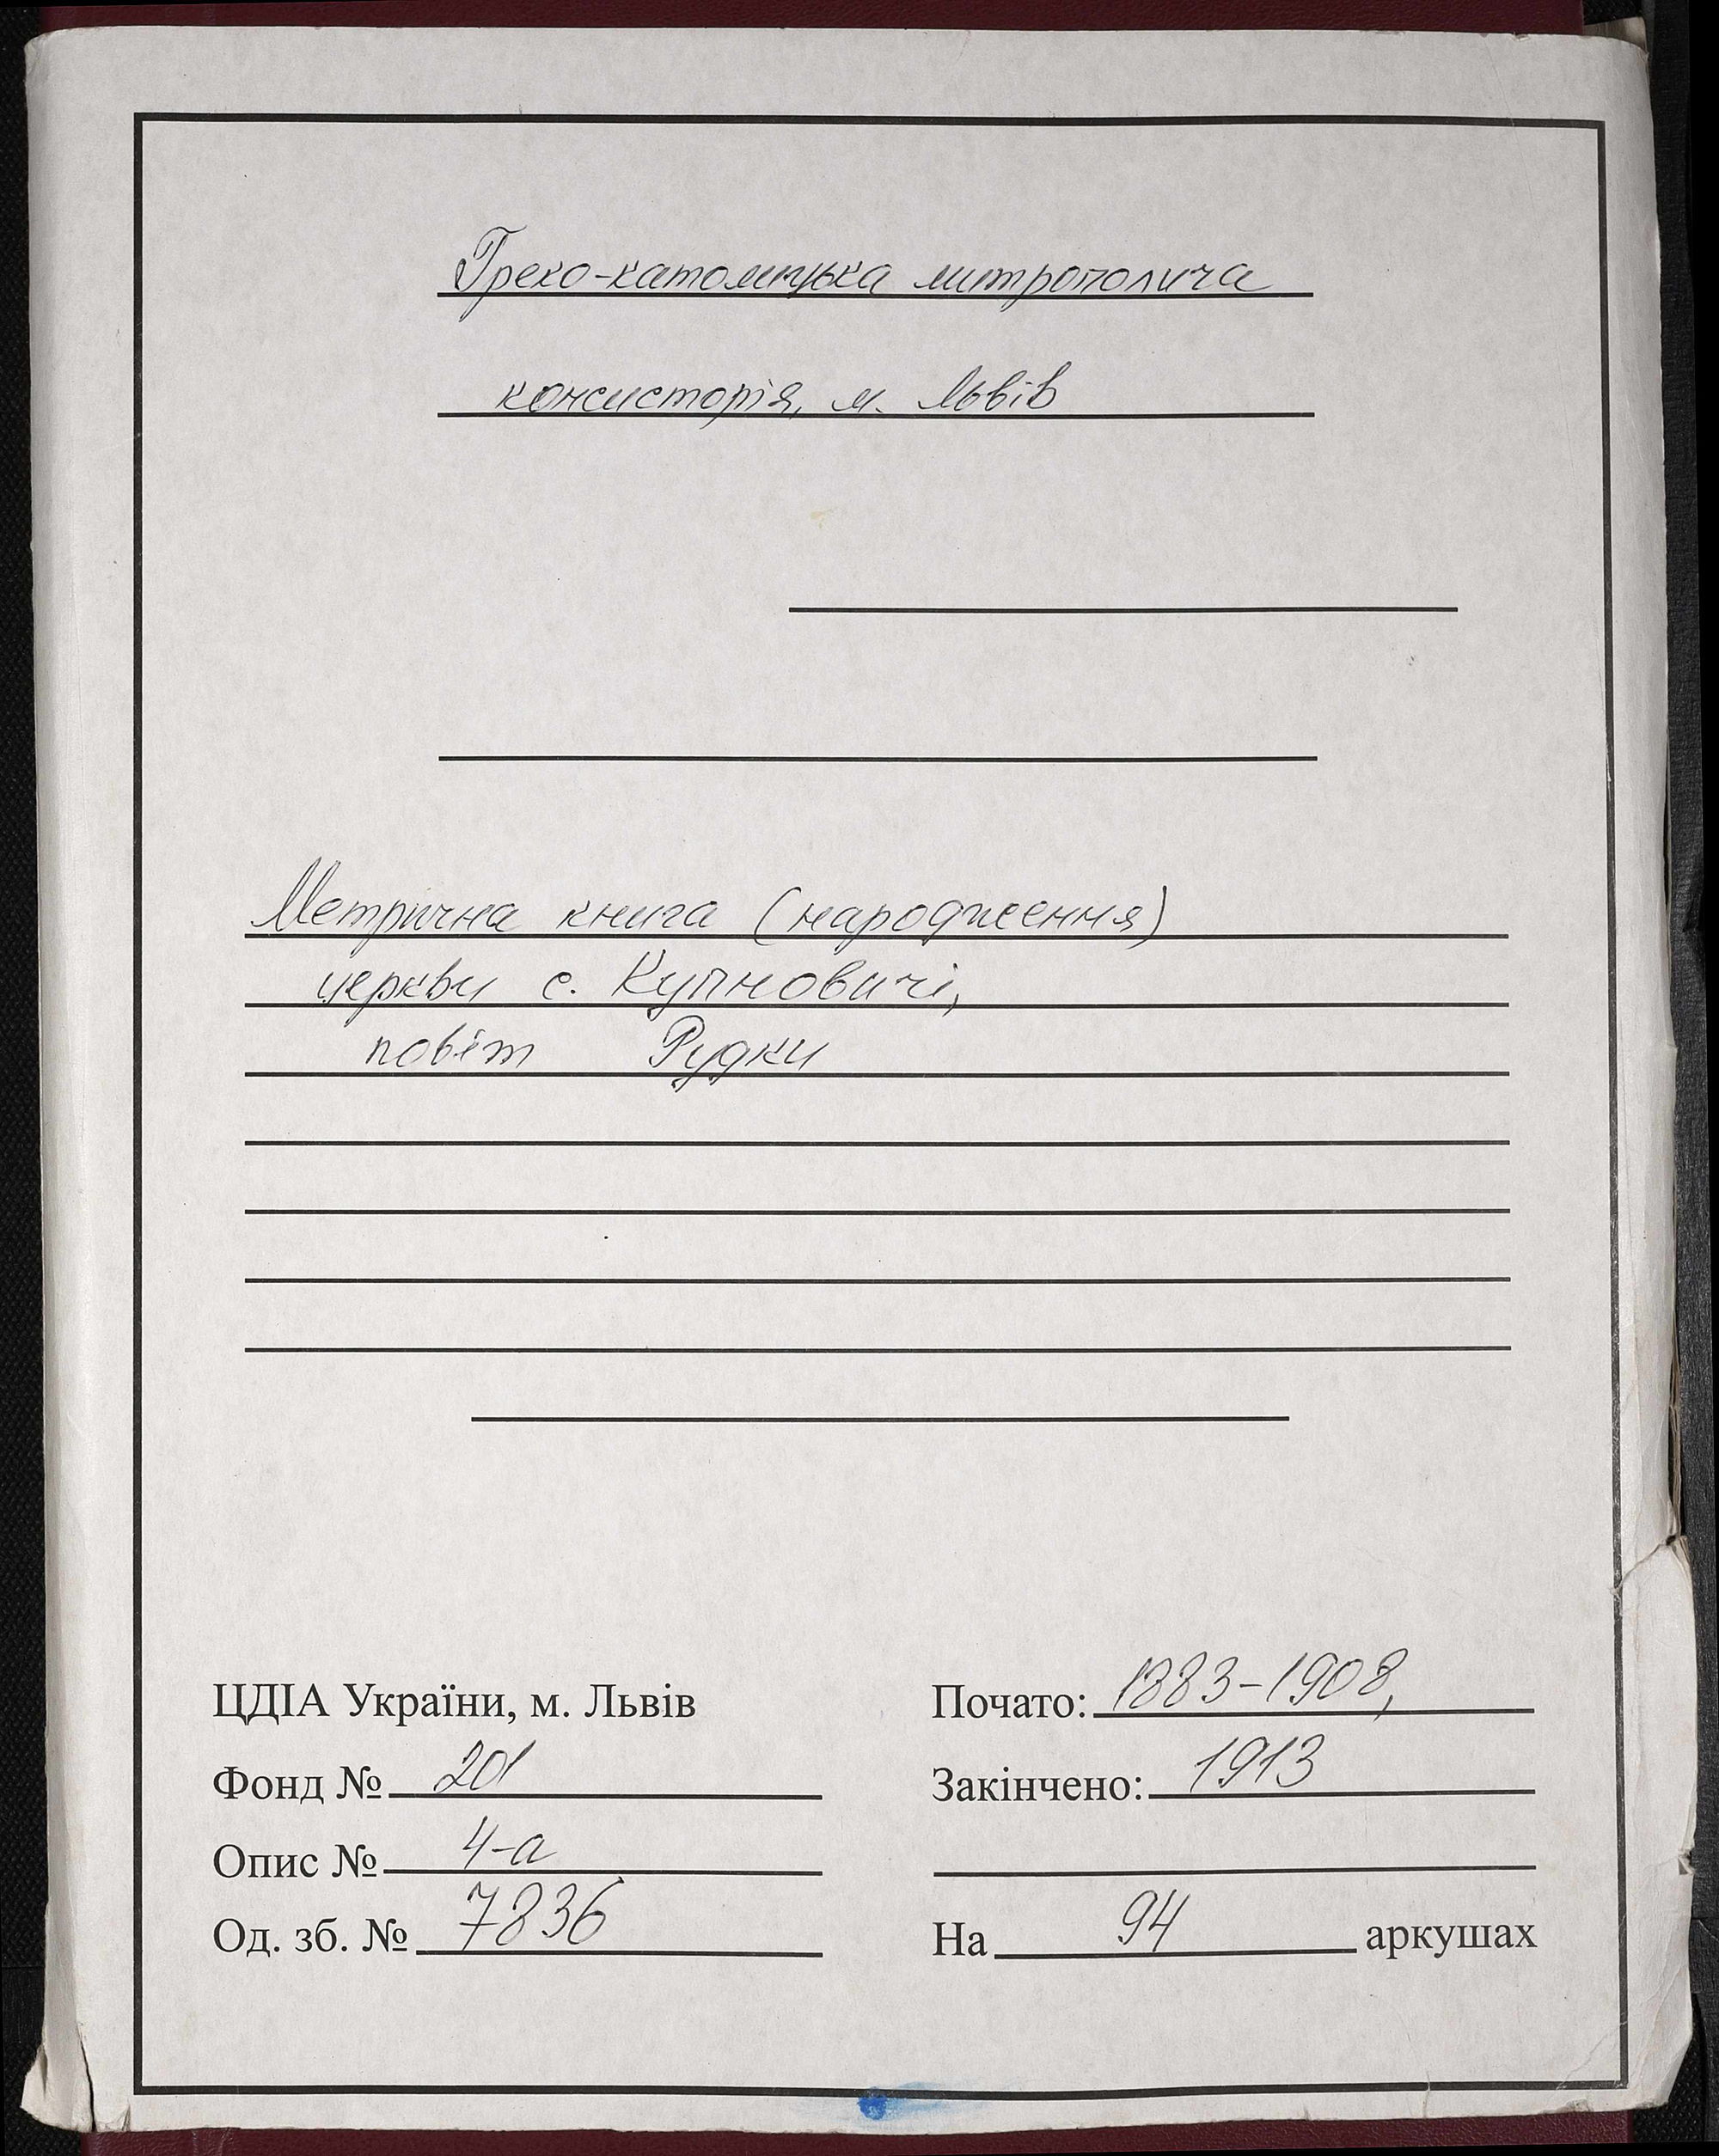 Греко-католицька митрополича
консисторія, м. Львів
Метрична книга (народження)
церкви с. Купновичі,
повіт Рудки
ЦДІА України, м. Львів
Фонд № 201
Опис № 4-а
Од. зб. № 7836
Почато: 1883-1908,
Закінчено: 1913
На 94 аркушах